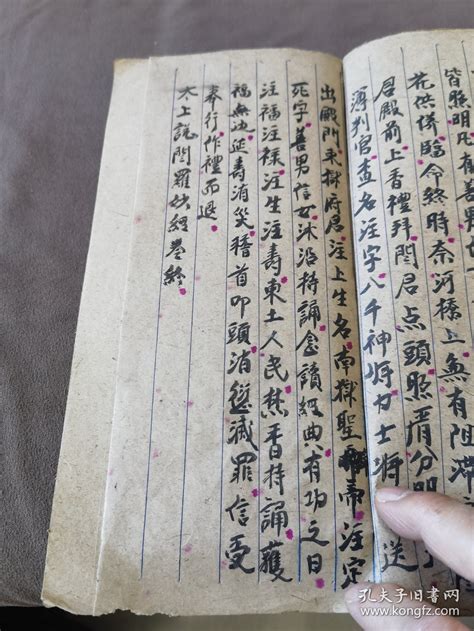 皆照明
花供併臨命終時奈何橋上無有阻滯
君殿前上香禮拜閻君点頭照肩分明
簿判官查名注字八千神將力士將送
出殿門東獄府君注上生名南獄聖帝注定
死字善男信女沐浴持誦念讀經典有功之日
注福注祿注生注壽東土人民焚香持誦獲
福無边延壽消災稽首叩頭消愆滅罪信受
奉行作禮而退
太上說閻羅妙經卷終
孔夫子旧書网
kongfz.com